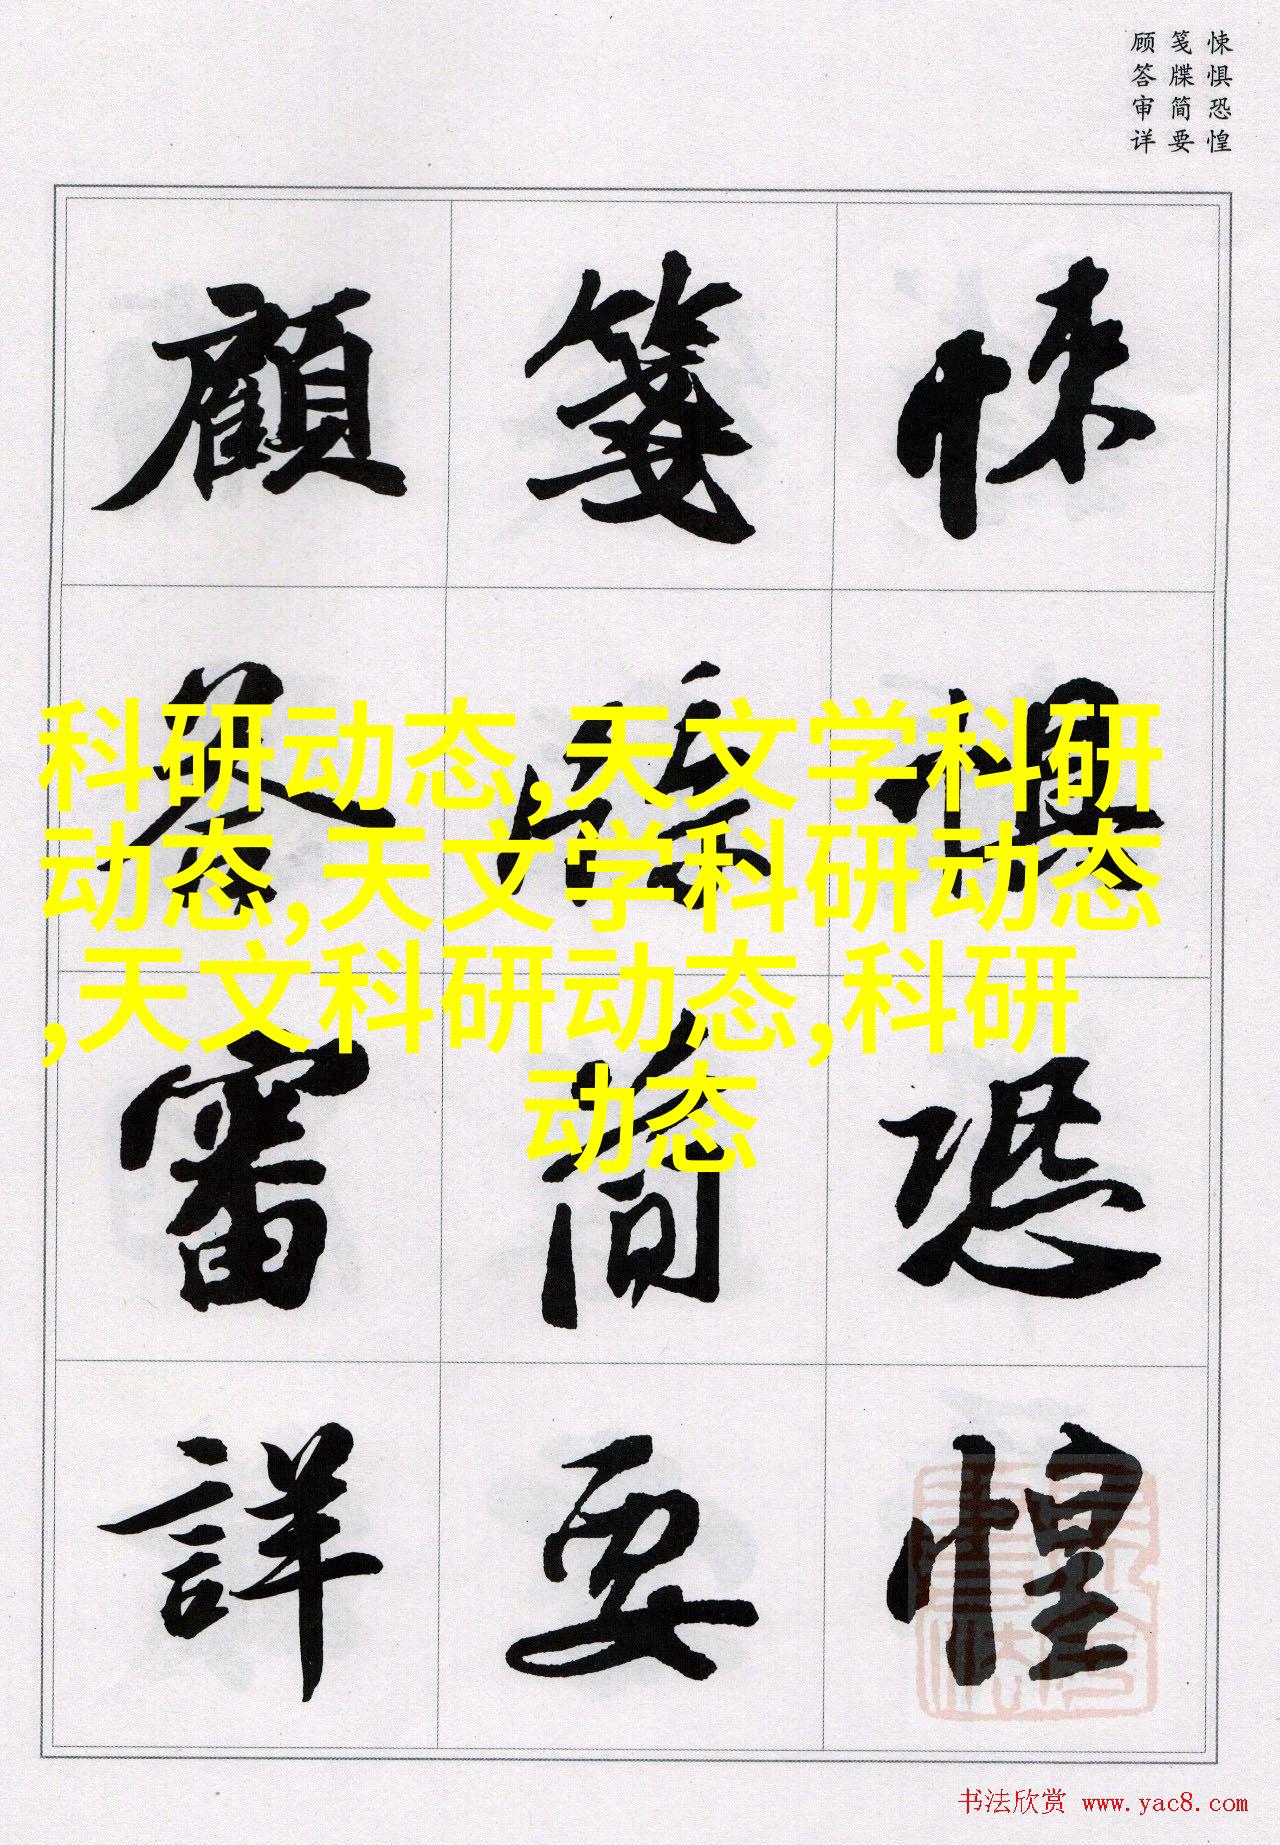 悚惧恐惶
笺牒简要
顾答审详
悚懼恐惶
箋牒簡要
顧答審詳
科研动态,天文学科研
动态,天文学科研动态
,天文科研动态,科研
动态
书法欣赏 www.yac8.com